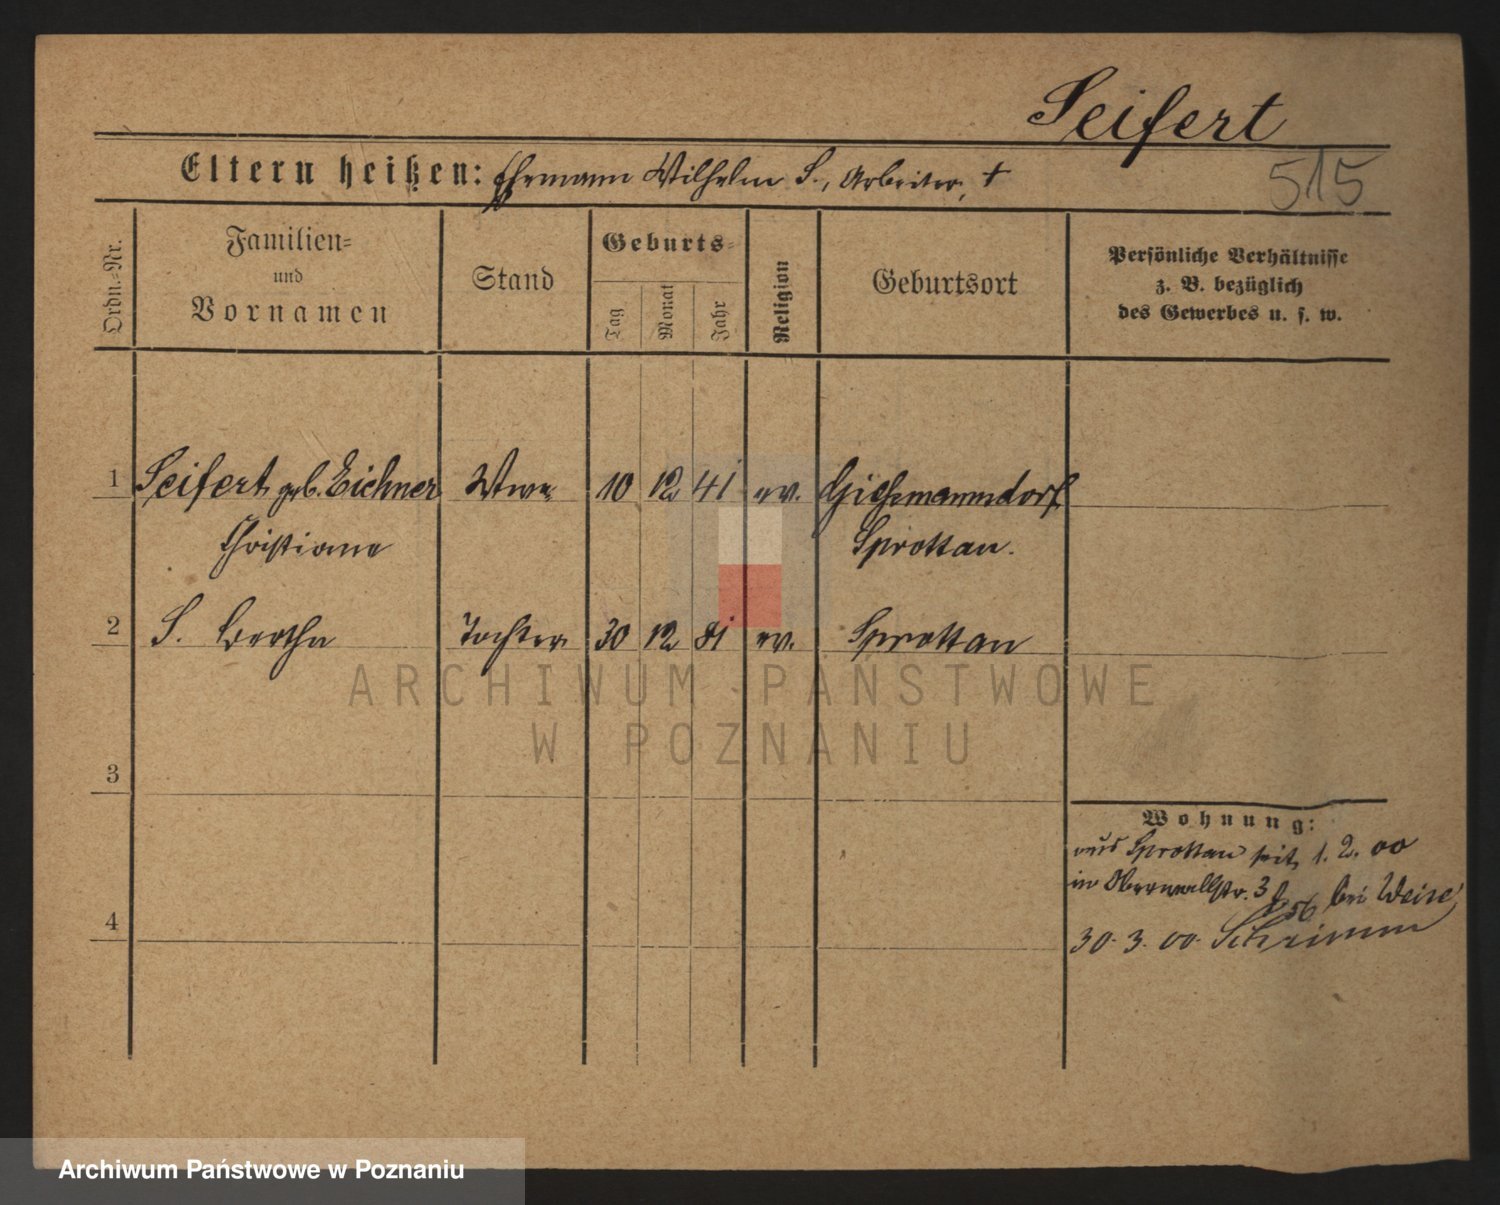 Seifert
515
Eltern heißen: Ehemann Wilhelm S., Arbeiter, †
Ordn.-Nr.
Familien-
und
Vornamen
Stand
Geburts-
Tag
Monat
Jahr
Religion
Geburtsort
Persönliche Verhältnisse
z. B. bezüglich
des Gewerbes u. s. w.
1 Seifert geb. Eichner Wwe 10 12 41 ev. Gießmannsdorf
Christiane Sprottau.
2 S. Bertha Tochter 30 12 81 ev. Sprottau
ARCHIWUM PAŃSTWOWE
W POZNANIU
3
Wohnung:
aus Sprottau seit 1. 2. 00
in Oberwallstr. 3 bei Weise
4
30. 3. 00. Schrimm
Archiwum Państwowe w Poznaniu